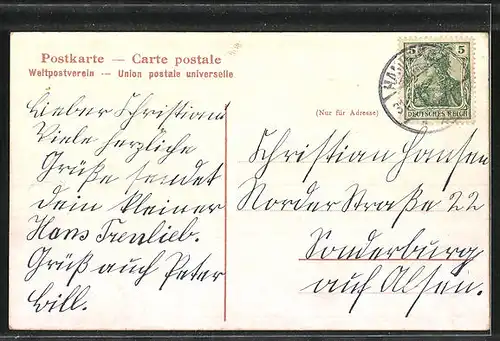 Postkarte — Carte postale
Weltpostverein — Union postale universelle
Lieber Christian!
Viele herzliche
Grüße sendet
dein kleiner
Hans Trenlieb.
Grüß auch Peter
Bill.
(Nur für Adresse)
5 5
DEUTSCHES REICH
Christian Hansen
Norder Straße 22
Sonderburg
auf Alsen.